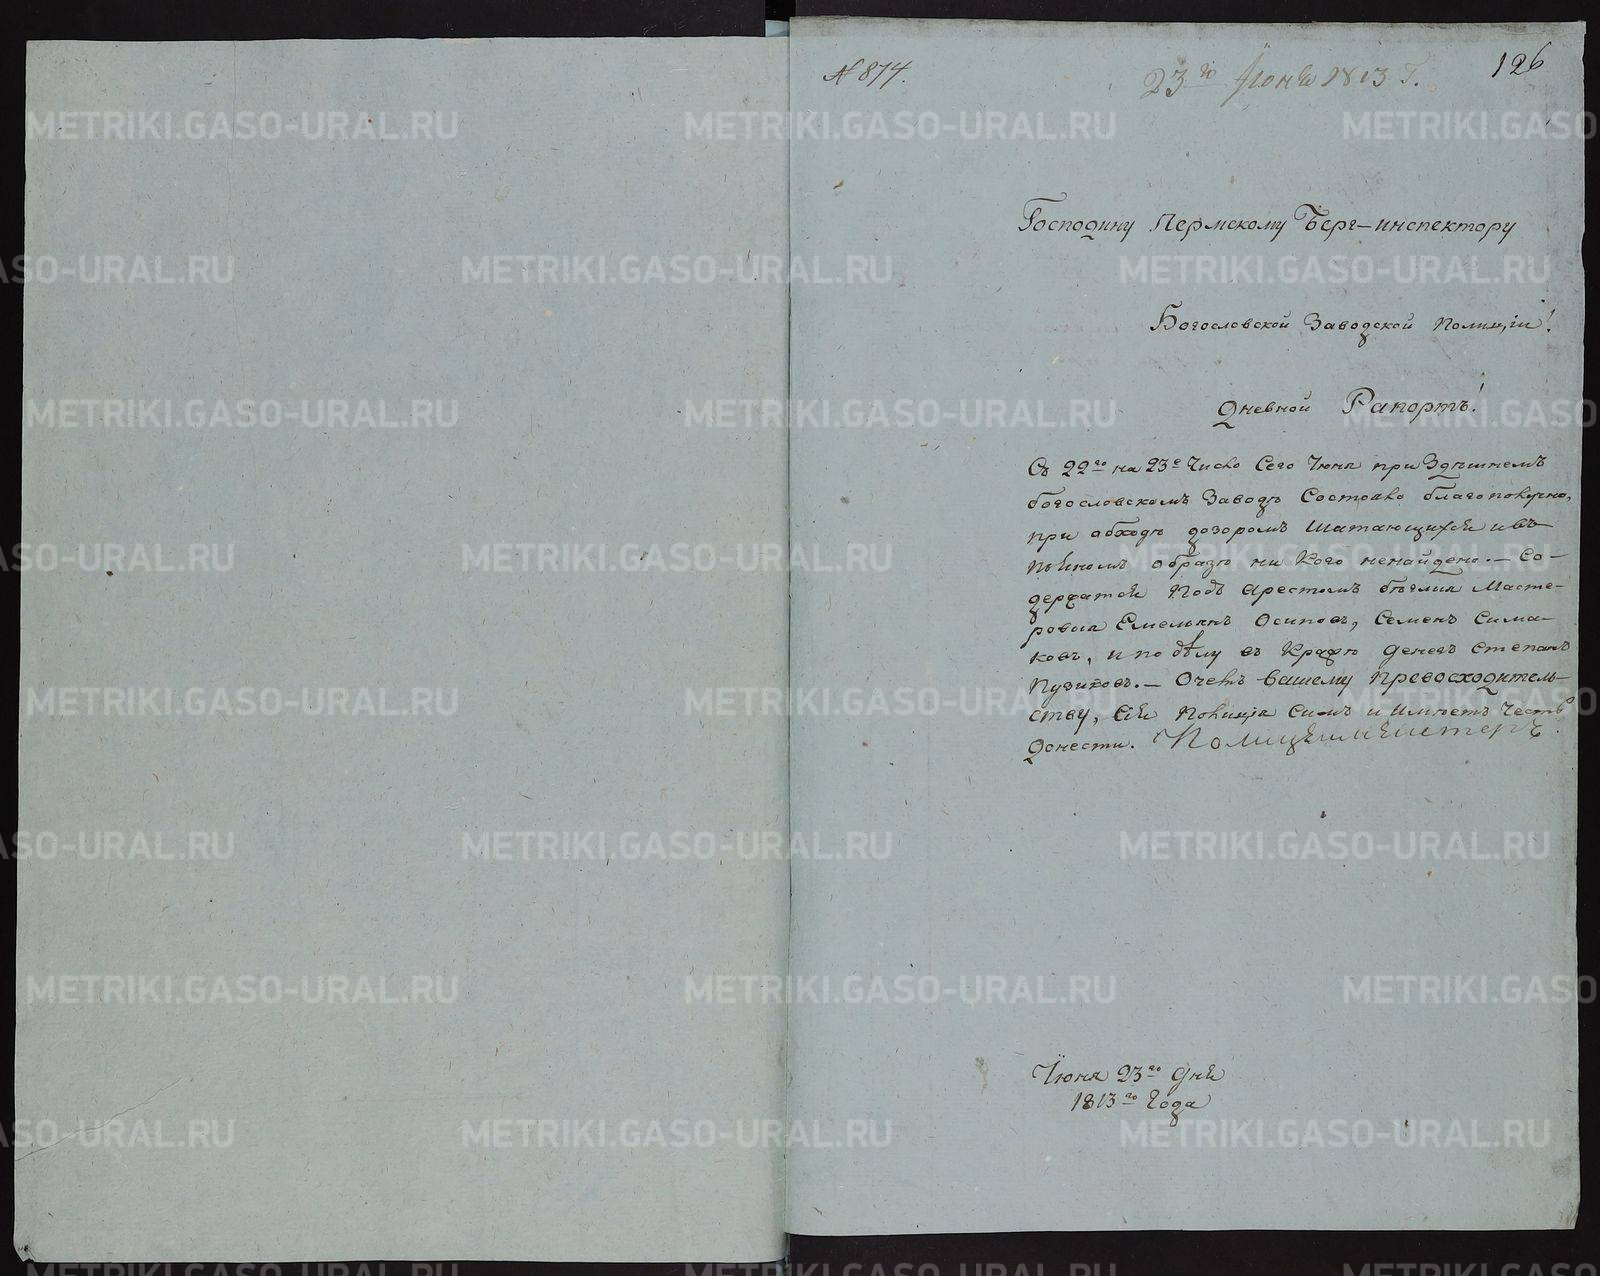 № 874.
23го Июня 1813 Г.
126
Господину Пермскому Берг-инспектору
Богословской Заводской Полиціи!
Дневной Рапортъ!
Съ 22го на 23е Число Сего Июня при Здѣшнемъ
богословскомъ Заводѣ Состояло благополучно,
при обходѣ дозоромъ Шатающихся и въ
пьяномъ образѣ ни Кого ненайдено. — Со-
держатся Подъ арестомъ беглыя Масте-
ровыя Емельянъ Осиповъ, Семенъ Сима-
ковъ, и по дѣлу въ Кражѣ Денегъ Степанъ
Пузиковъ. — О чемъ вашему превосходитель-
ству, Сія полиція Симъ и имѣетъ Честь
донести. Полицеймейстеръ
Июня 23го Дня
1813го Года
METRIKI.GASO-URAL.RU